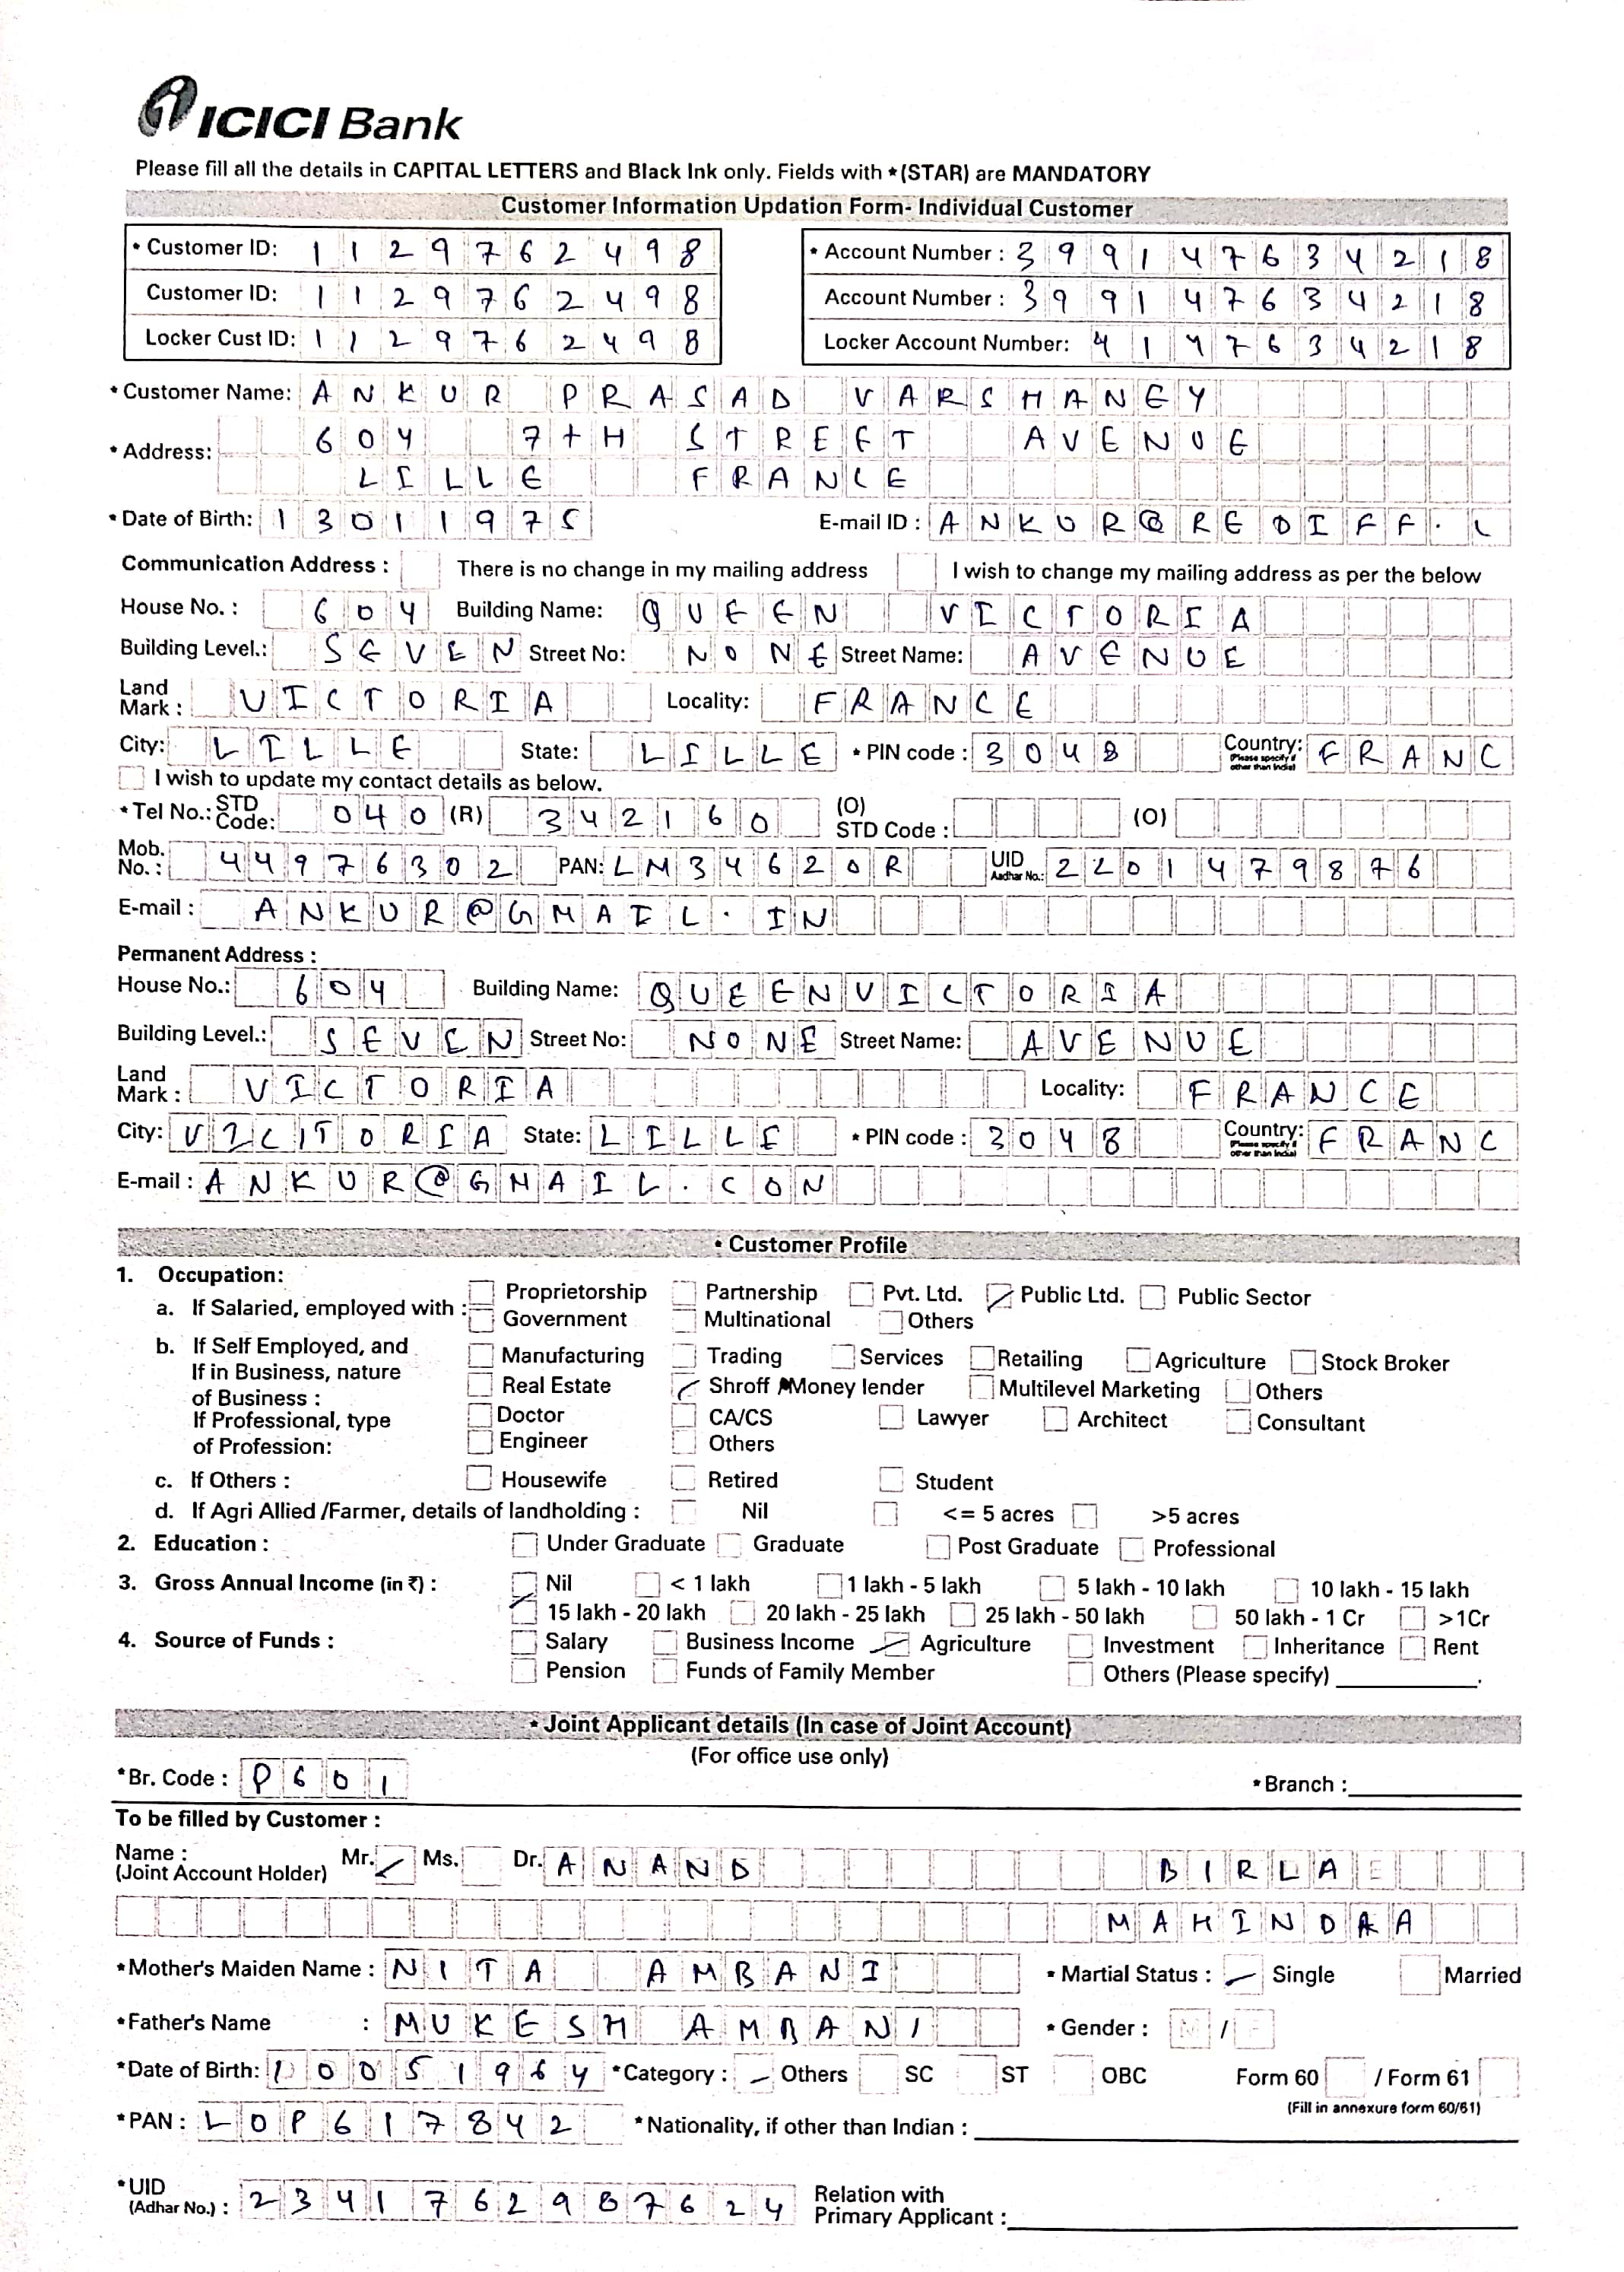 ICICI Bank
Please fill all the details in CAPITAL LETTERS and Black Ink only. Fields with *(STAR) are MANDATORY
Customer Information Updation Form- Individual Customer
* Customer ID: 1129762498 * Account Number : 399147634218
Customer ID: 1129762498 Account Number : 399147634218
Locker Cust ID: 1129762498 Locker Account Number: 4147634218
* Customer Name: ANKUR PRASAD VARSHANEY
* Address: 604 7tH STREET AVENUE
LILLE FRANCE
* Date of Birth: 13011975 E-mail ID : ANKUR@REDIFF.C
Communication Address : There is no change in my mailing address I wish to change my mailing address as per the below
House No. : 604 Building Name: QUEEN VICTORIA
Building Level.: SEVEN Street No: NONE Street Name: AVENUE
Land Mark : VICTORIA Locality: FRANCE
City: LILLE State: LILLE * PIN code : 3048 Country: (Please specify if other than India) FRANC
I wish to update my contact details as below.
* Tel No.: STD Code: 040 (R) 342160 (O) STD Code : (O)
Mob. No. : 44976302 PAN: LM34620R UID Aadhar No.: 2201479876
E-mail : ANKUR@GMAIL.IN
Permanent Address :
House No.: 604 Building Name: QUEENVICTORIA
Building Level.: SEVEN Street No: NONE Street Name: AVENUE
Land Mark : VICTORIA Locality: FRANCE
City: State: LILLE * PIN code : 3048 Country: (Please specify if other than India) FRANC
E-mail : ANKUR@GMAIL.CON
* Customer Profile
1. Occupation: Proprietorship Partnership Pvt. Ltd. Public Ltd. Public Sector
a. If Salaried, employed with : Government Multinational Others
b. If Self Employed, and If in Business, nature of Business : Manufacturing Trading Services Retailing Agriculture Stock Broker
Real Estate Shroff /Money lender Multilevel Marketing Others
If Professional, type of Profession: Doctor CA/CS Lawyer Architect Consultant
Engineer Others
c. If Others : Housewife Retired Student
d. If Agri Allied /Farmer, details of landholding : Nil <= 5 acres >5 acres
2. Education : Under Graduate Graduate Post Graduate Professional
3. Gross Annual Income (in ₹) : Nil < 1 lakh 1 lakh - 5 lakh 5 lakh - 10 lakh 10 lakh - 15 lakh
15 lakh - 20 lakh 20 lakh - 25 lakh 25 lakh - 50 lakh 50 lakh - 1 Cr >1Cr
4. Source of Funds : Salary Business Income Agriculture Investment Inheritance Rent
Pension Funds of Family Member Others (Please specify)
* Joint Applicant details (In case of Joint Account)
(For office use only)
*Br. Code : P601 * Branch :
To be filled by Customer :
Name : (Joint Account Holder) Mr. Ms. Dr. ANAND BIRLA
MAHINDRA
*Mother's Maiden Name : NITA AMBANI * Martial Status : Single Married
*Father's Name : MUKESH AMBANI * Gender : M / F
*Date of Birth: 10051964 *Category : Others SC ST OBC Form 60 / Form 61
(Fill in annexure form 60/61)
*PAN : LOP617842 *Nationality, if other than Indian :
*UID (Adhar No.) : 2341762987624 Relation with Primary Applicant :